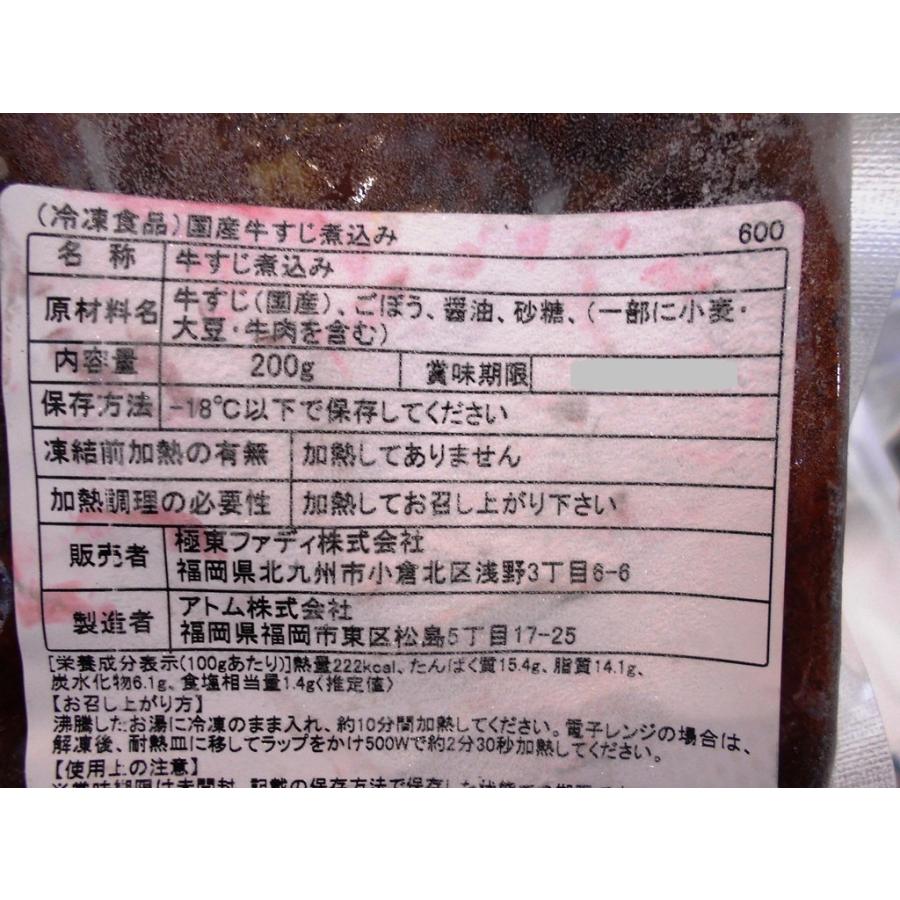 (冷凍食品)国産牛すじ煮込み 600
名称 牛すじ煮込み
原材料名 牛すじ(国産)、ごぼう、醤油、砂糖、(一部に小麦・
大豆・牛肉を含む)
内容量 200g 賞味期限
保存方法 -18℃以下で保存してください
凍結前加熱の有無 加熱してありません
加熱調理の必要性 加熱してお召し上がり下さい
販売者 極東ファディ株式会社
福岡県北九州市小倉北区浅野3丁目6-6
製造者 アトム株式会社
福岡県福岡市東区松島5丁目17-25
[栄養成分表示(100gあたり)]熱量222kcal、たんぱく質15.4g、脂質14.1g、
炭水化物6.1g、食塩相当量1.4g<推定値>
【お召し上がり方】
沸騰したお湯に冷凍のまま入れ、約10分間加熱してください。電子レンジの場合は、
解凍後、耐熱皿に移してラップをかけ500Wで約2分30秒加熱してください。
【使用上の注意】
※賞味期限は未開封、記載の保存方法で保存した状態での期限です